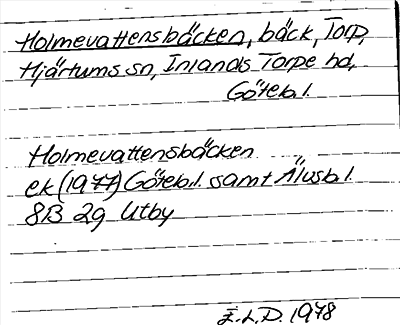 Holmevattensbäcken, bäck, Torp,
Hjärtums sn, Inlands Torpe hd,
Göteb.l.
Holmevattensbäcken
ek (1977) Göteb.l. samt Älvsb.l.
8B 2g Utby
E.L.D. 1978